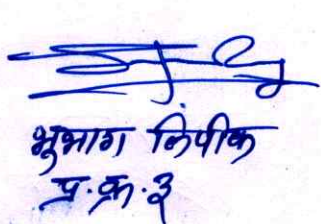 भुभाग लिपीक
प्र.क्र.३